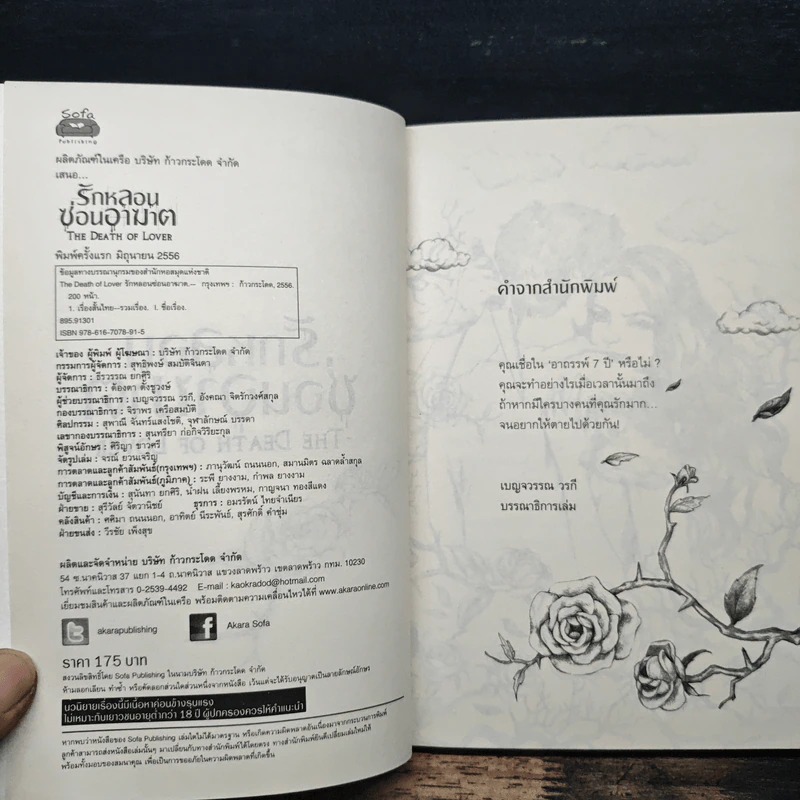 Sofa
Publishing
ผลิตภัณฑ์ในเครือ บริษัท ก้าวกระโดด จำกัด
เสนอ...
รักหลอน
ซ่อนอาฆาต
THE DEATH OF LOVER
พิมพ์ครั้งแรก มิถุนายน 2556
ข้อมูลทางบรรณานุกรมของสำนักหอสมุดแห่งชาติ
The Death of Lover รักหลอนซ่อนอาฆาต.-- กรุงเทพฯ : ก้าวกระโดด, 2556.
200 หน้า.
1. เรื่องสั้นไทย--รวมเรื่อง. I. ชื่อเรื่อง.
895.91301
ISBN 978-616-7078-91-5
เจ้าของ ผู้พิมพ์ ผู้โฆษณา : บริษัท ก้าวกระโดด จำกัด
กรรมการผู้จัดการ : สุทธิพงษ์ สมบัติจินดา
ผู้จัดการ : ธีรวรรณ ยกศิริ
บรรณาธิการ : ต้องตา ตั้งชูวงษ์
ผู้ช่วยบรรณาธิการ : เบญจวรรณ วรกี, อังคณา จิตรักวงศ์สกุล
กองบรรณาธิการ : จิราพร เครือสมบัติ
ศิลปกรรม : สุพาณี จันทร์แสงโชติ, จุฬาลักษณ์ บรรดา
เลขากองบรรณาธิการ : สุนทรียา ก่อกิจวิริยะกุล
พิสูจน์อักษร : ศิริญา ขาวศรี
จัดรูปเล่ม : จรณี ยวนเจริญ
การตลาดและลูกค้าสัมพันธ์(กรุงเทพฯ) : ภานุวัฒน์ ถนนนอก, สมานมิตร ฉลาดล้ำสกุล
การตลาดและลูกค้าสัมพันธ์(ภูมิภาค) : ระพี ยางงาม, กำพล ยางงาม
บัญชีและการเงิน : สุนันทา ยกศิริ, น้ำฝน เลี้ยงพรหม, กาญจนา ทองสีแดง
ฝ่ายขาย : สุรีวัลย์ จัตวานิชย์ ธุรการ : อมรรัตน์ ไทยจำเนียร
คลังสินค้า : คศิมา ถนนนอก, อาทิตย์ นีระพันธ์, สุรศักดิ์ คำชุ่ม
ฝ่ายขนส่ง : วีรชัย เพ็งสุข
ผลิตและจัดจำหน่าย บริษัท ก้าวกระโดด จำกัด
54 ซ.นาคนิวาส 37 แยก 1-4 ถ.นาคนิวาส แขวงลาดพร้าว เขตลาดพร้าว กทม. 10230
โทรศัพท์และโทรสาร 0-2539-4492 E-mail : kaokradod@hotmail.com
เยี่ยมชมสินค้าและผลิตภัณฑ์ในเครือ พร้อมติดตามความเคลื่อนไหวได้ที่ www.akaraonline.com
akarapublishing
Akara Sofa
ราคา 175 บาท
สงวนลิขสิทธิ์โดย Sofa Publishing ในนามบริษัท ก้าวกระโดด จำกัด
ห้ามลอกเลียน ทำซ้ำ หรือคัดลอกส่วนใดส่วนหนึ่งจากหนังสือ เว้นแต่จะได้รับอนุญาตเป็นลายลักษณ์อักษร
นวนิยายเรื่องนี้มีเนื้อหาค่อนข้างรุนแรง
ไม่เหมาะกับเยาวชนอายุต่ำกว่า 18 ปี ผู้ปกครองควรให้คำแนะนำ
หากพบว่าหนังสือของ Sofa Publishing เล่มใดไม่ได้มาตรฐาน หรือเกิดความผิดพลาดอันเนื่องมาจากกระบวนการพิมพ์
ลูกค้าสามารถส่งหนังสือเล่มนั้นๆ มาเปลี่ยนกับทางสำนักพิมพ์ได้โดยตรง ทางสำนักพิมพ์ยินดีเปลี่ยนเล่มใหม่ให้
พร้อมทั้งมอบของสมนาคุณ เพื่อเป็นการขออภัยในความผิดพลาดที่เกิดขึ้น
คำจากสำนักพิมพ์
คุณเชื่อใน 'อาถรรพ์ 7 ปี' หรือไม่ ?
คุณจะทำอย่างไรเมื่อเวลานั้นมาถึง
ถ้าหากมีใครบางคนที่คุณรักมาก...
จนอยากให้ตายไปด้วยกัน!
เบญจวรรณ วรกี
บรรณาธิการเล่ม